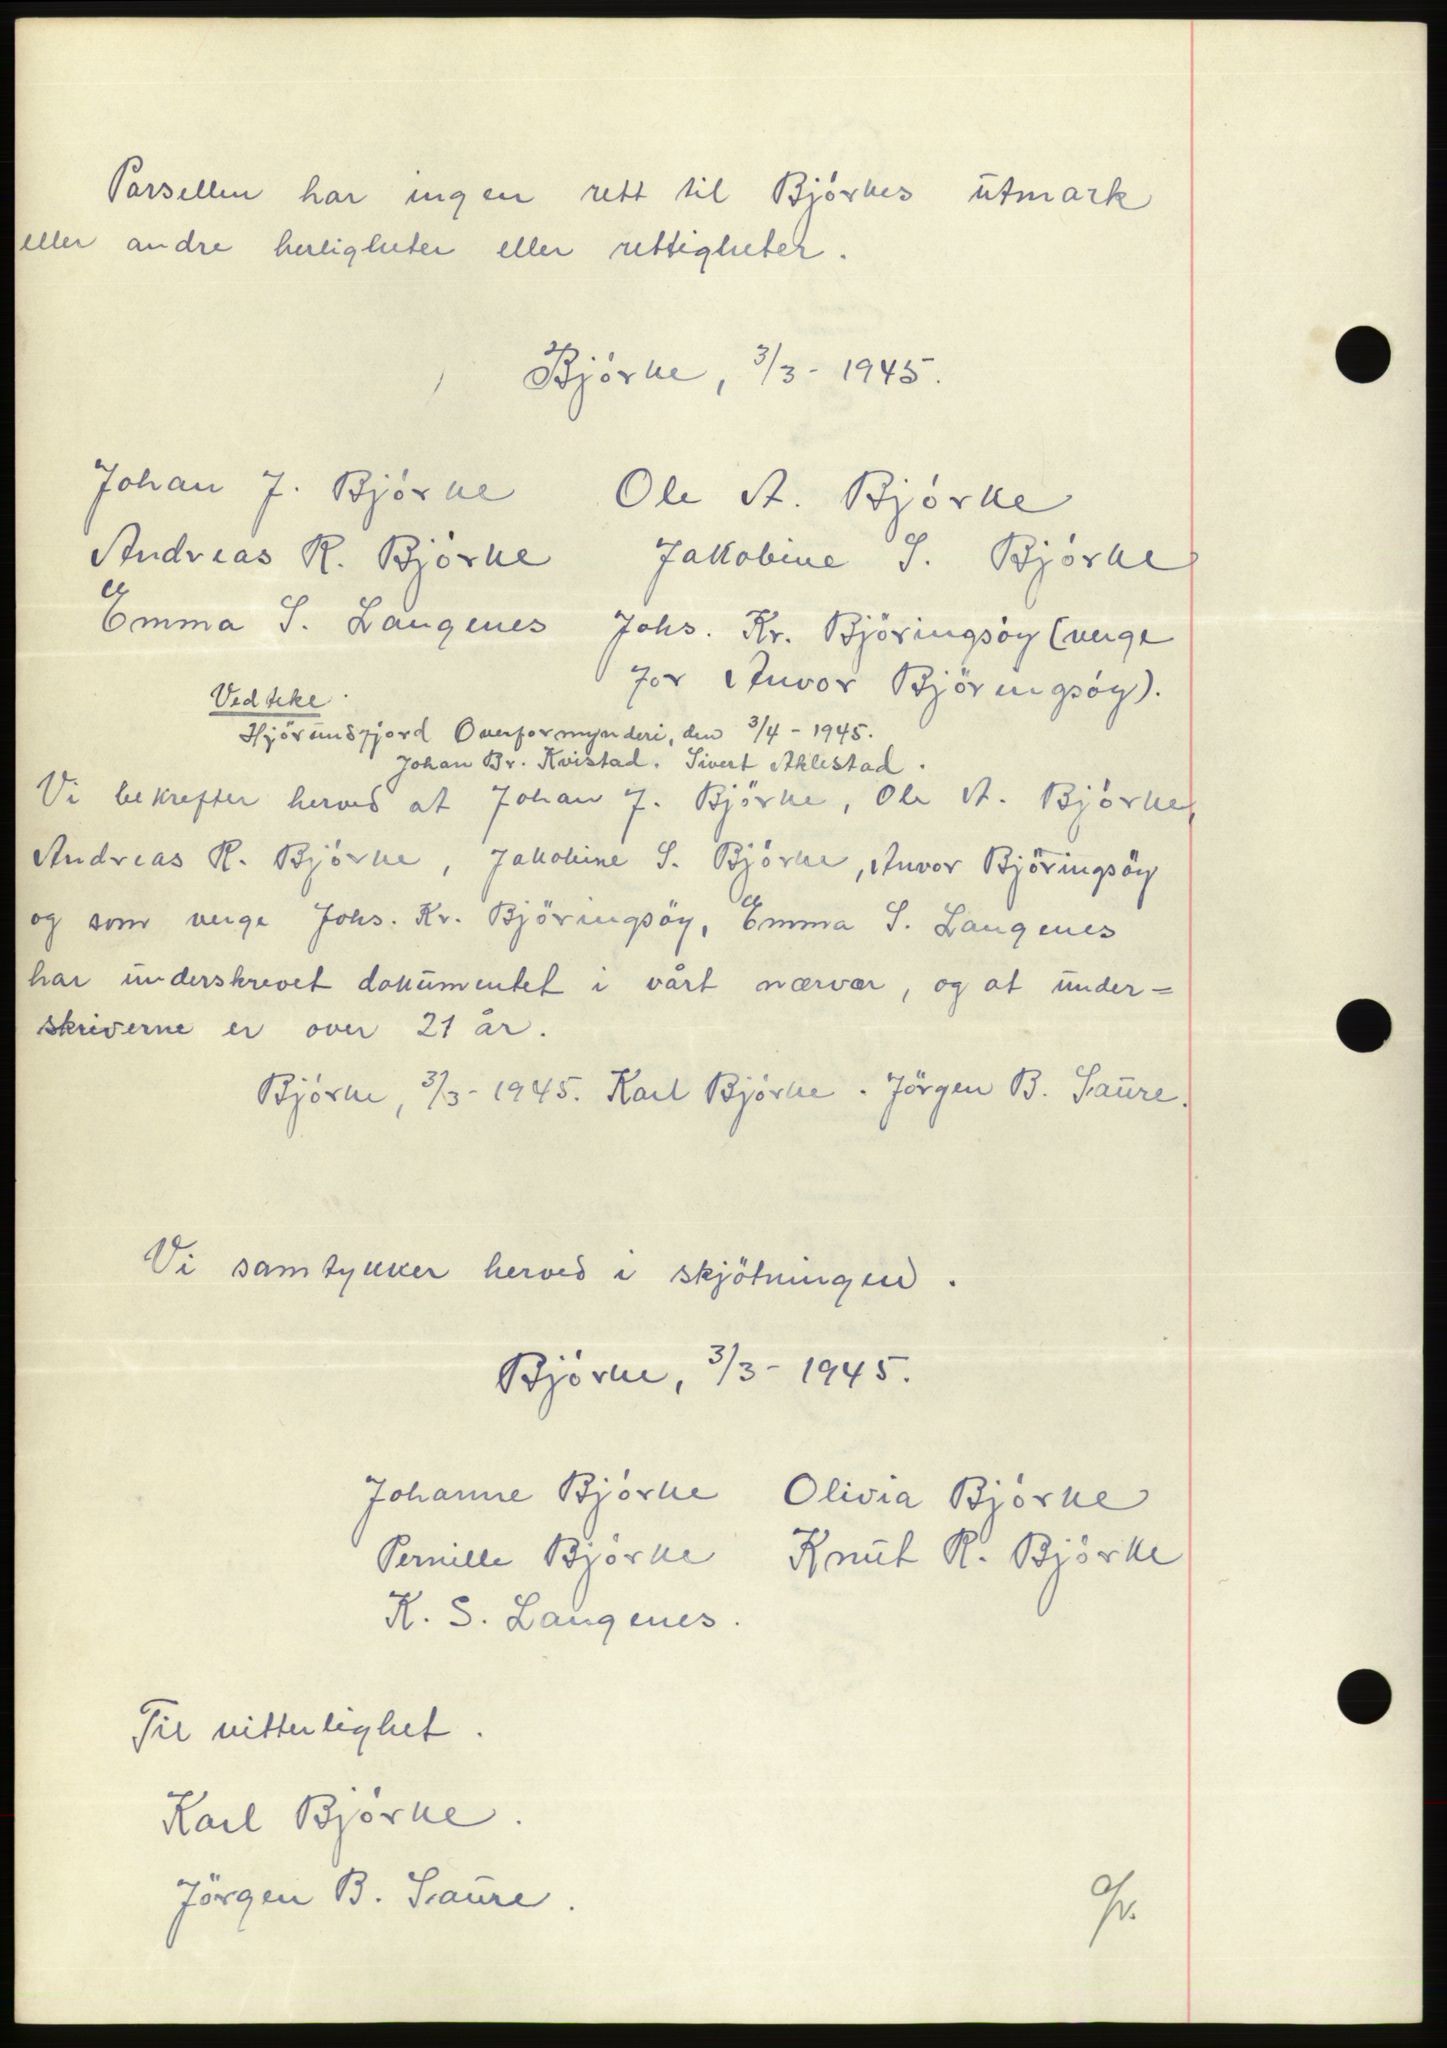 Parsellen har ingen rett til Björkes utmark
eller andre herligheter eller rettigheter.
Björke, 3/3 - 1945.
Johan J. Björke Ole A. Björke
Andreas R. Björke Jakobine S. Björke
Emma S. Langenes Johs. Kr. Björingsöy (verge
for Anvor Björingsöy).
Vedteke.
Hjörundfjord Overformynderi, den 3/4 - 1945.
Johan Br. Kvistad. Sivert Aklestad.
Vi bekrefter herved at Johan J. Björke, Ole A. Björke,
Andreas R. Björke, Jakobine S. Björke, Anvor Björingsöy
og som verge Johs. Kr. Björingsöy, Emma S. Langenes
har underskrevet dokumentet i vårt nærvær, og at under=
skriverne er over 21 år.
Björke, 3/3 - 1945. Karl Björke. Jörgen B. Saure.
Vi samtykker herved i skjötningen.
Björke, 3/3 - 1945.
Johanne Björke Olivia Björke
Pernille Björke Knut R. Björke
K. S. Langenes.
Til vitterlighet.
Karl Björke.
Jörgen B. Saure.